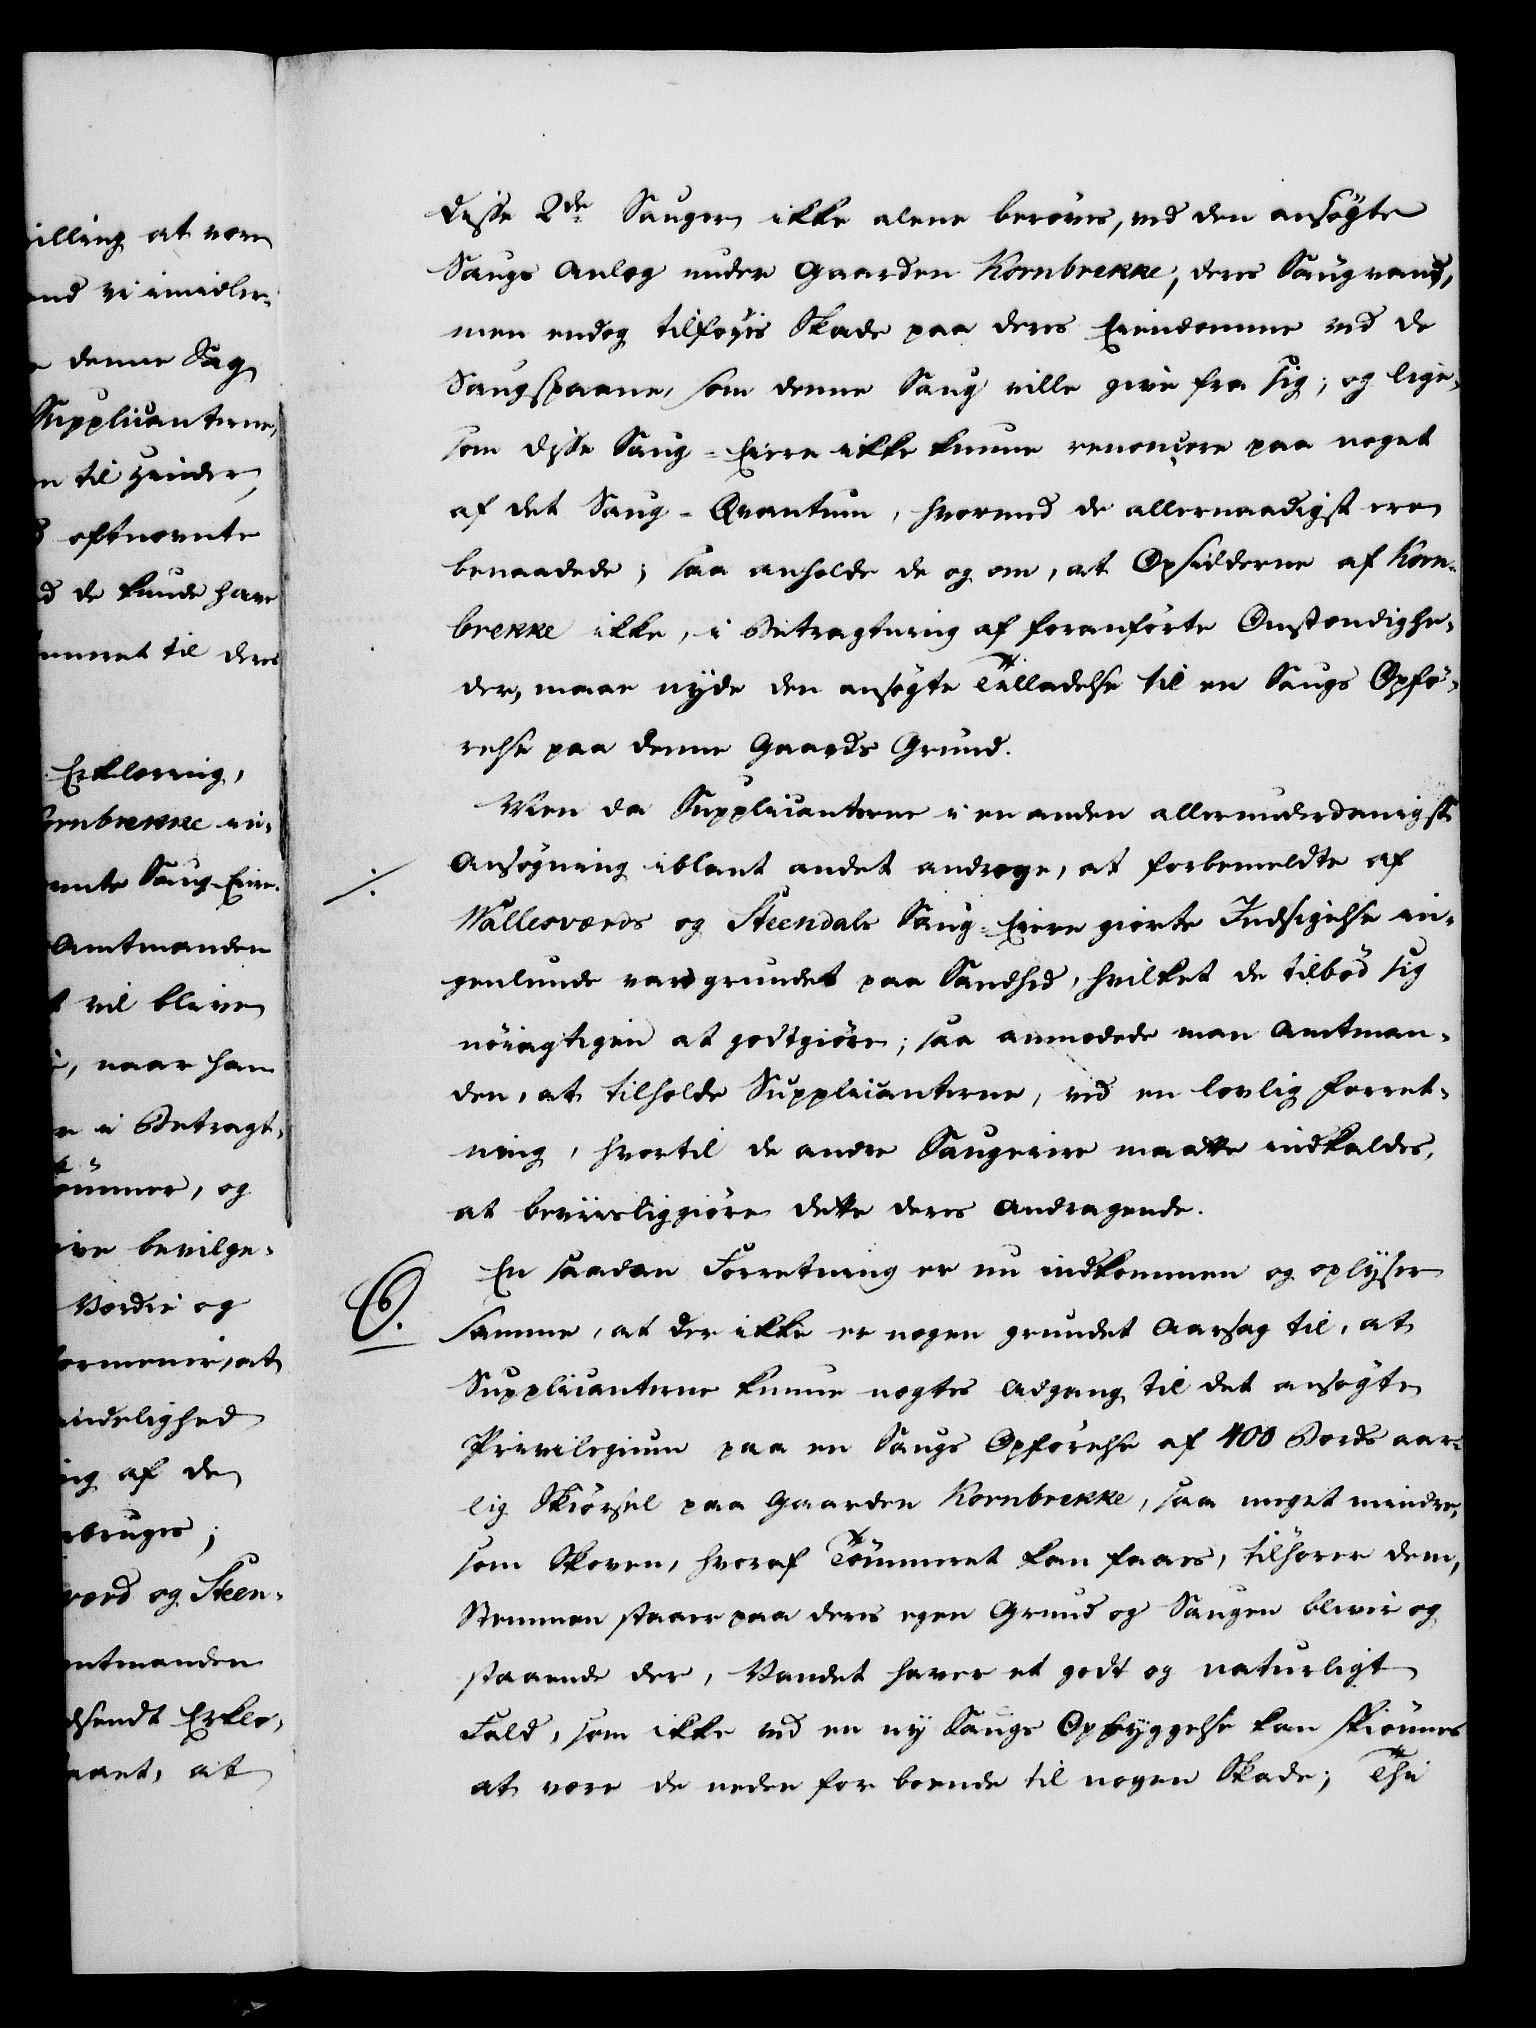 illing at være
end vi imidler-
denne Sag
Supplicanterne,
n til Hinder,
oftnævnte
d de kunde have
mmeret til deres
Erklæring,
ornbrekke in-
mte Saug-Eiere
Amtmanden
t vil blive
, naar han
e i Betragt-
ömmer, og
ive bevilge-
Værdie og
ormener, at
indelighed
ng af de
bruges;
værd og Steen-
mtmanden
dsendt Erklæ-
aaet, at
disse 2de Sauger ikke alene beröves, ved den ansögte
Saugs Anlæg under Gaarden Kornbrekke, deres Saugvand,
men endog tilföyes Skade paa deres Eiendomme ved de
Saugspaane, som denne Saug ville give fra sig; og lige-
som disse Saug-Eiere ikke kunne renoncere paa noget
af det Saug-Qvantum, hvormed de allernaadigst ere
benaadede; saa anholde de og om, at Opsidderne af Korn-
brekke ikke, i Betragtning af foranförte Omstændighe-
der, maae nyde den ansögte Tilladelse til en Saugs Opfö-
relse paa denne Gaards Grund.
Men da Supplicanterne i en anden allerunderdanigst
Ansögning iblant andet androge, at forbemeldte af
Wallesværds og Steendals Saug-Eiere giorte Indsigelse in-
genlunde var grundet paa Sandhed, hvilket de tilböd sig
nöiagtigen at godtgiöre; saa anmodede man Amtman-
den, at tilholde Supplicanterne, ved en lovlig Forret-
ning, hvortil de andre Saugeiere maatte indkaldes,
at beviisliggiöre dette deres Andragende.
6.
En saadan Forretning er nu indkommen og oplyser
samme, at der ikke er nogen grundet Aarsag til, at
Supplicanterne kunne nægtes Adgang til det ansögte
Privilegium paa en Saugs Opförelse af 400 Bords aar-
lig Skiörsel paa Gaarden Kornbrekke, saa meget mindre,
som Skoven, hvoraf Tömmeret kan faaes, tilhörer dem,
Stemmen staaer paa deres egen Grund og Saugen bliver og
staaende der, Vandet haver et godt og naturligt
Fald, som ikke ved en ny Saugs Opbyggelse kan skiönnes
at være de neden for boende til nogen Skade; Thi